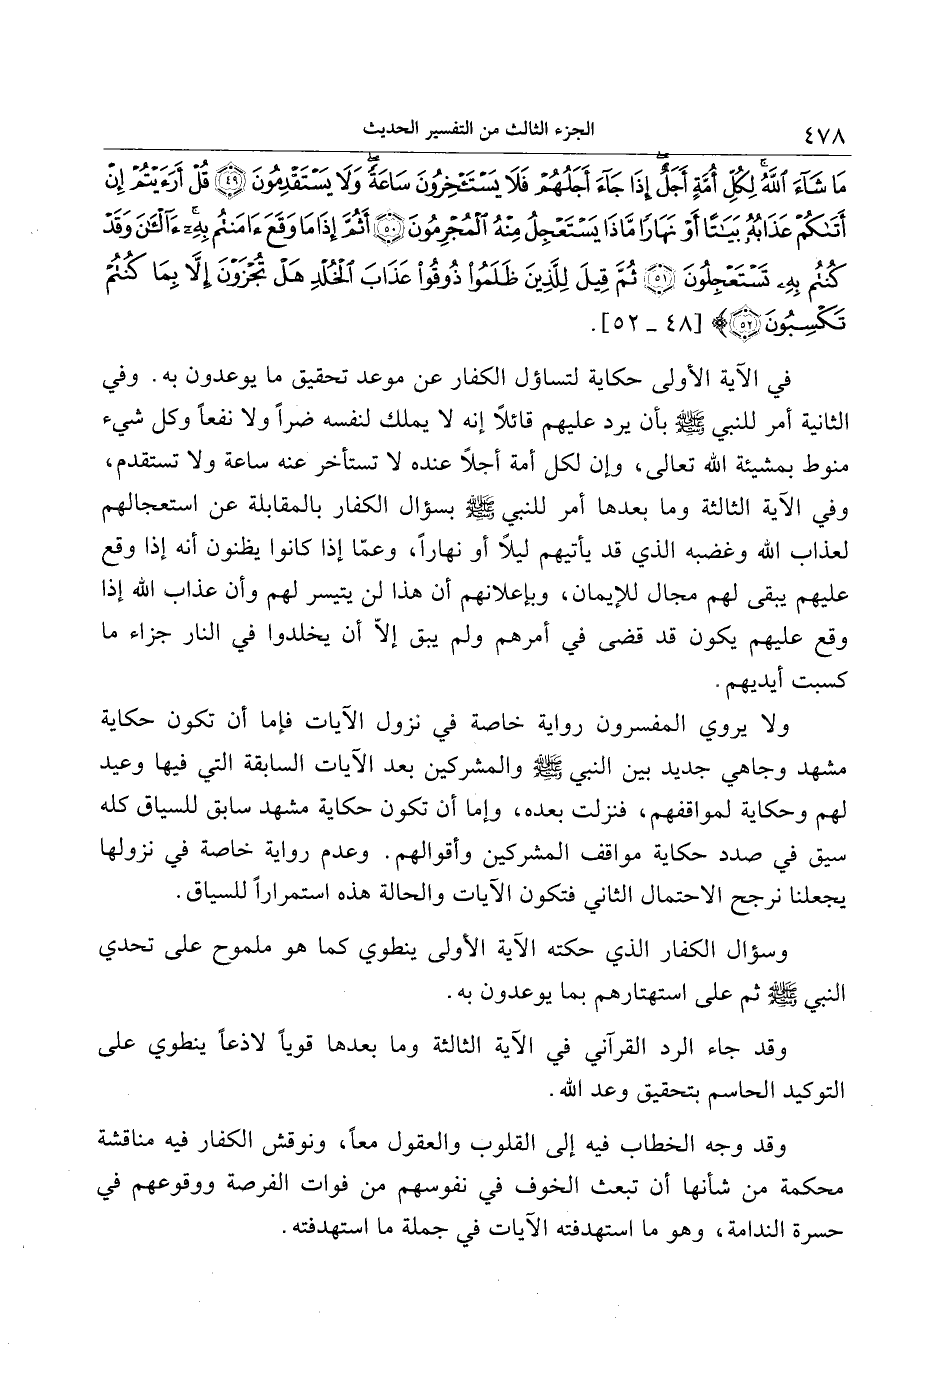 ٤٧٨ الجزء الثالث من التفسير الحديث
مَا شَآءَ ٱللَّهُۗ لِكُلِّ أُمَّةٍ أَجَلٌۚ إِذَا جَآءَ أَجَلُهُمْ فَلَا يَسْتَـْٔخِرُونَ سَاعَةً وَلَا يَسْتَقْدِمُونَ ﴿٤٩﴾ قُلْ أَرَءَيْتُمْ إِنْ
أَتَىٰكُمْ عَذَابُهُۥ بَيَـٰتًا أَوْ نَهَارًا مَّاذَا يَسْتَعْجِلُ مِنْهُ ٱلْمُجْرِمُونَ ﴿٥٠﴾ أَثُمَّ إِذَا مَا وَقَعَ ءَامَنتُم بِهِۦٓۚ ءَآلْـَٔـٰنَ وَقَدْ
كُنتُم بِهِۦ تَسْتَعْجِلُونَ ﴿٥١﴾ ثُمَّ قِيلَ لِلَّذِينَ ظَلَمُوا۟ ذُوقُوا۟ عَذَابَ ٱلْخُلْدِ هَلْ تُجْزَوْنَ إِلَّا بِمَا كُنتُمْ
تَكْسِبُونَ ﴿٥٢﴾﴾ [٤٨ ـ ٥٢].
في الآية الأولى حكاية لتساؤل الكفار عن موعد تحقيق ما يوعدون به. وفي
الثانية أمر للنبي ﷺ بأن يرد عليهم قائلاً إنه لا يملك لنفسه ضراً ولا نفعاً وكل شيء
منوط بمشيئة الله تعالى، وإن لكل أمة أجلاً عنده لا تستأخر عنه ساعة ولا تستقدم،
وفي الآية الثالثة وما بعدها أمر للنبي ﷺ بسؤال الكفار بالمقابلة عن استعجالهم
لعذاب الله وغضبه الذي قد يأتيهم ليلاً أو نهاراً، وعمّا إذا كانوا يظنون أنه إذا وقع
عليهم يبقى لهم مجال للإيمان، وبإعلانهم أن هذا لن يتيسر لهم وأن عذاب الله إذا
وقع عليهم يكون قد قضى في أمرهم ولم يبق إلاّ أن يخلدوا في النار جزاء ما
كسبت أيديهم.
ولا يروي المفسرون رواية خاصة في نزول الآيات فإما أن تكون حكاية
مشهد وجاهي جديد بين النبي ﷺ والمشركين بعد الآيات السابقة التي فيها وعيد
لهم وحكاية لمواقفهم، فنزلت بعده، وإما أن تكون حكاية مشهد سابق للسياق كله
سيق في صدد حكاية مواقف المشركين وأقوالهم. وعدم رواية خاصة في نزولها
يجعلنا نرجح الاحتمال الثاني فتكون الآيات والحالة هذه استمراراً للسياق.
وسؤال الكفار الذي حكته الآية الأولى ينطوي كما هو ملموح على تحدي
النبي ﷺ ثم على استهتارهم بما يوعدون به.
وقد جاء الرد القرآني في الآية الثالثة وما بعدها قوياً لاذعاً ينطوي على
التوكيد الحاسم بتحقيق وعد الله.
وقد وجه الخطاب فيه إلى القلوب والعقول معاً، ونوقش الكفار فيه مناقشة
محكمة من شأنها أن تبعث الخوف في نفوسهم من فوات الفرصة ووقوعهم في
حسرة الندامة، وهو ما استهدفته الآيات في جملة ما استهدفته.